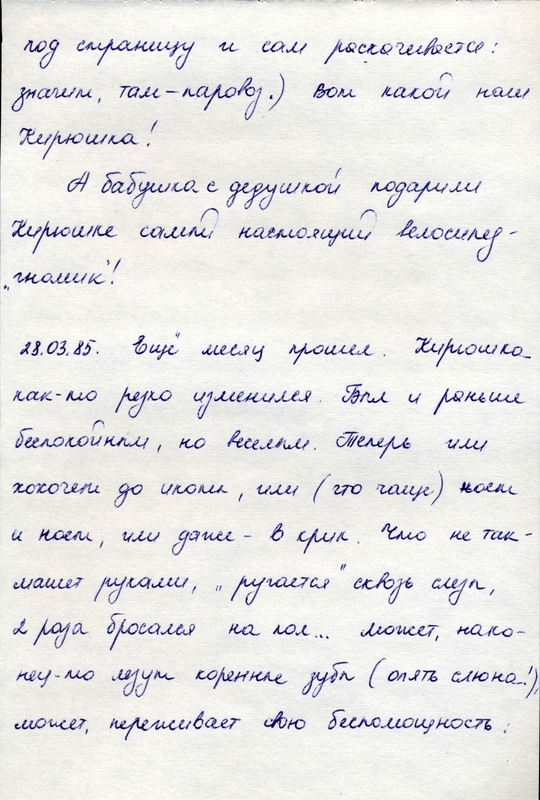 под страницу и сам раскачивается:
значит, там-паровоз.) Вот какой наш
Кирюшка!
А бабушка с дедушкой подарили
Кирюшке самый настоящий велосипед-
„гномик"!
28.03.85. Ещё месяц прошел. Кирюшка
как-то резко изменился. Был и раньше
беспокойным, но веселым. Теперь или
хохочет до икоты, или (что чаще) ноет
и ноет, или даже - в крик. Что не так-
машет руками, „ругается" сквозь слезы,
2 раза бросался на пол... может, нако-
нец-то лезут коренные зубы (опять слюна!),
может, переживает свою беспомощность: